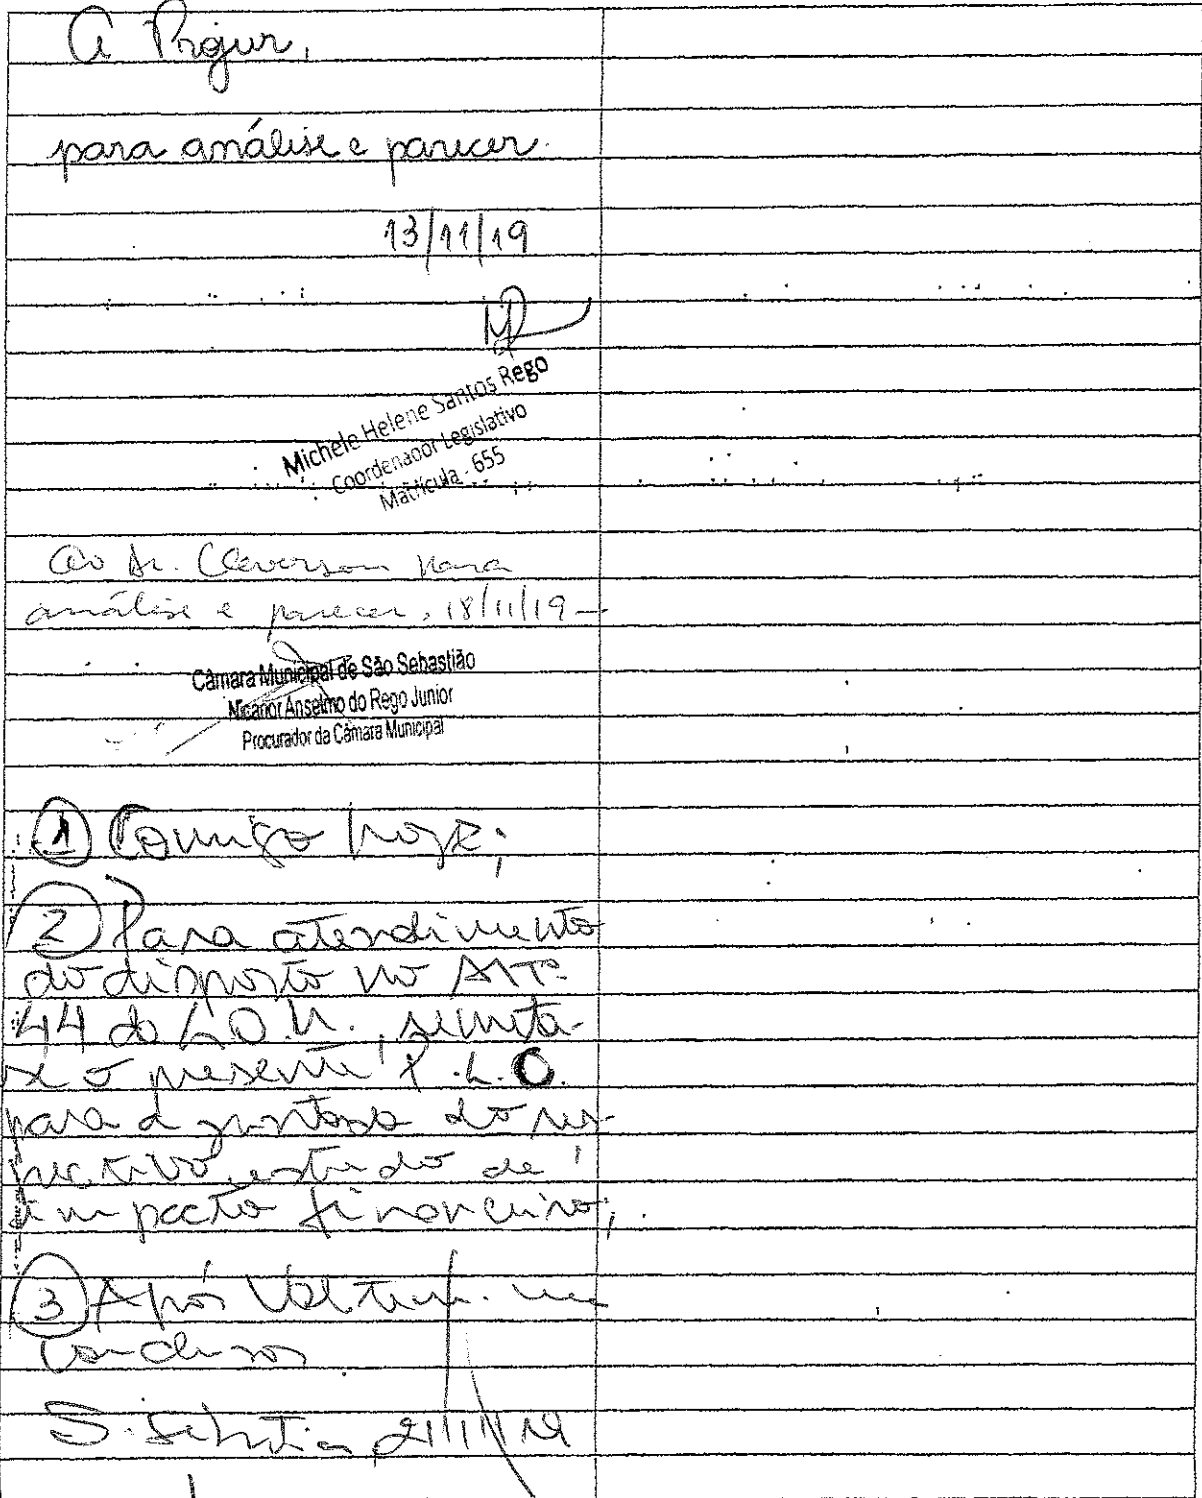 A Projur,
para análise e parecer.
13/11/19
Michele Helene Santos Rego
Coordenador Legislativo
Matrícula - 655
Ao Dr. Cleverson para
análise e parecer, 18/11/19
Câmara Municipal de São Sebastião
Nicanor Anselmo do Rego Junior
Procurador da Câmara Municipal
1 Comigo hoje;
2 Para atendimento
do disposto no Artº
44 da L.O.M., remeta-
se o presente P.L.O.
para a juntada do res-
pectivo estudo de
impacto financeiro;
3 Após voltem-me
conclusos
S. Sebastião, 21/11/19